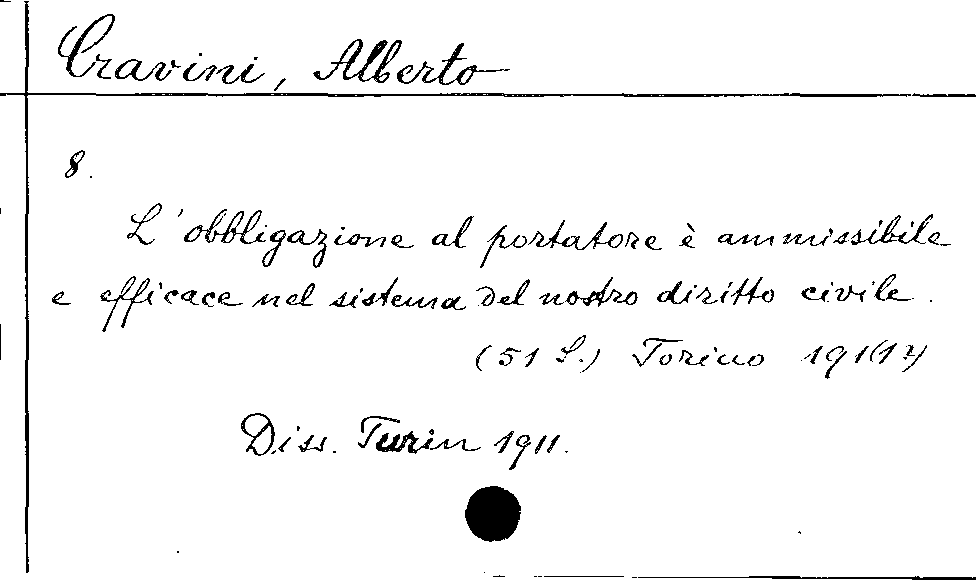 Cravini, Alberto
8.
L'obbligazione al portatore è ammissibile
e efficace nel sistema del nostro diritto civile.
(51 S.) Torino 191(1?)
Diss. Turin 1911.